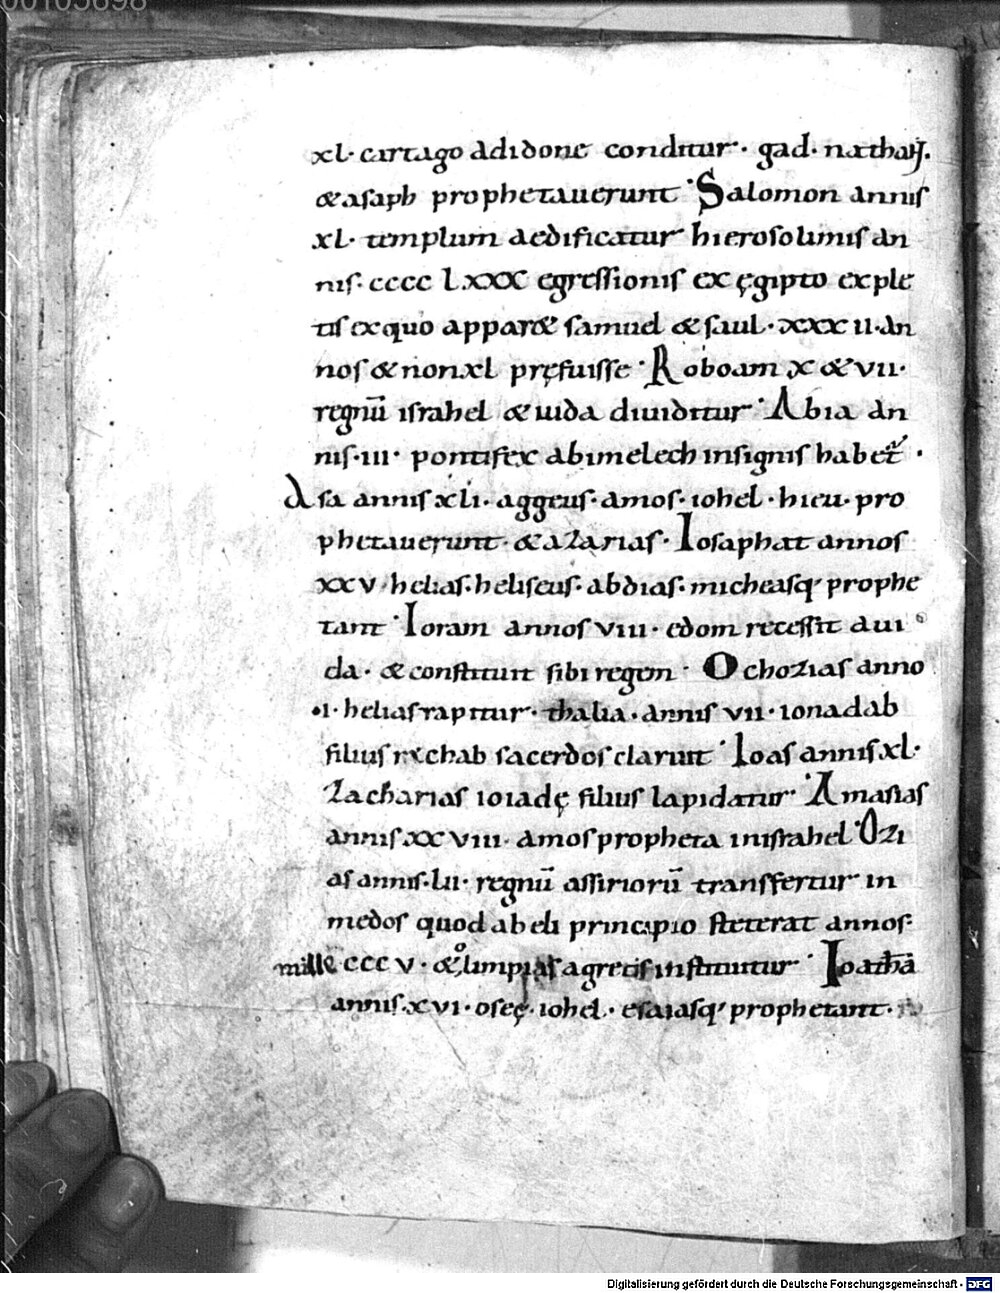 00105698
xl· cartago adidone conditur· gad· nathan·
&asaph prophetauerunt· Salomon annis
xl· templum aedificatur hierosolimis an
nis· cccc lxxx egressionis ex ęgipto exple
tis exquo appar& samuel & saul· xxxii·an
nos & non xl pręfuisse· Roboam x & vii·
regnū israhel & iuda diuiditur· Abia an
nis·iii· pontifex abimelech insignis habet̄·
Asa annis xli· aggeus·amos·iohel·hieu·pro
phetauerunt·&azarias· Iosaphat annos
xxv·helias·heliseus·abdias·micheasq· prophe
tant· Ioram annos viii·edom recessit aui
da·&constituit sibi regem· Ochozias anno
·i·helias rapitur·thalia·annis vii·ionadab
filius rechab sacerdos claruit· Ioas annis xl·
Zacharias ioiadę filius lapidatur· Amasias
annis xxviii·amos propheta inisrahel· Ozi
as annis·lii·regnū assiriorū transfertur in
medos quod abeli principio steterat annos·
mille cccv·&olimpias agrecis instituitur· Ioathā
annis·xvi·oseę·iohel·esaiasq· prophetant·
Digitalisierung gefördert durch die Deutsche Forschungsgemeinschaft · DFG